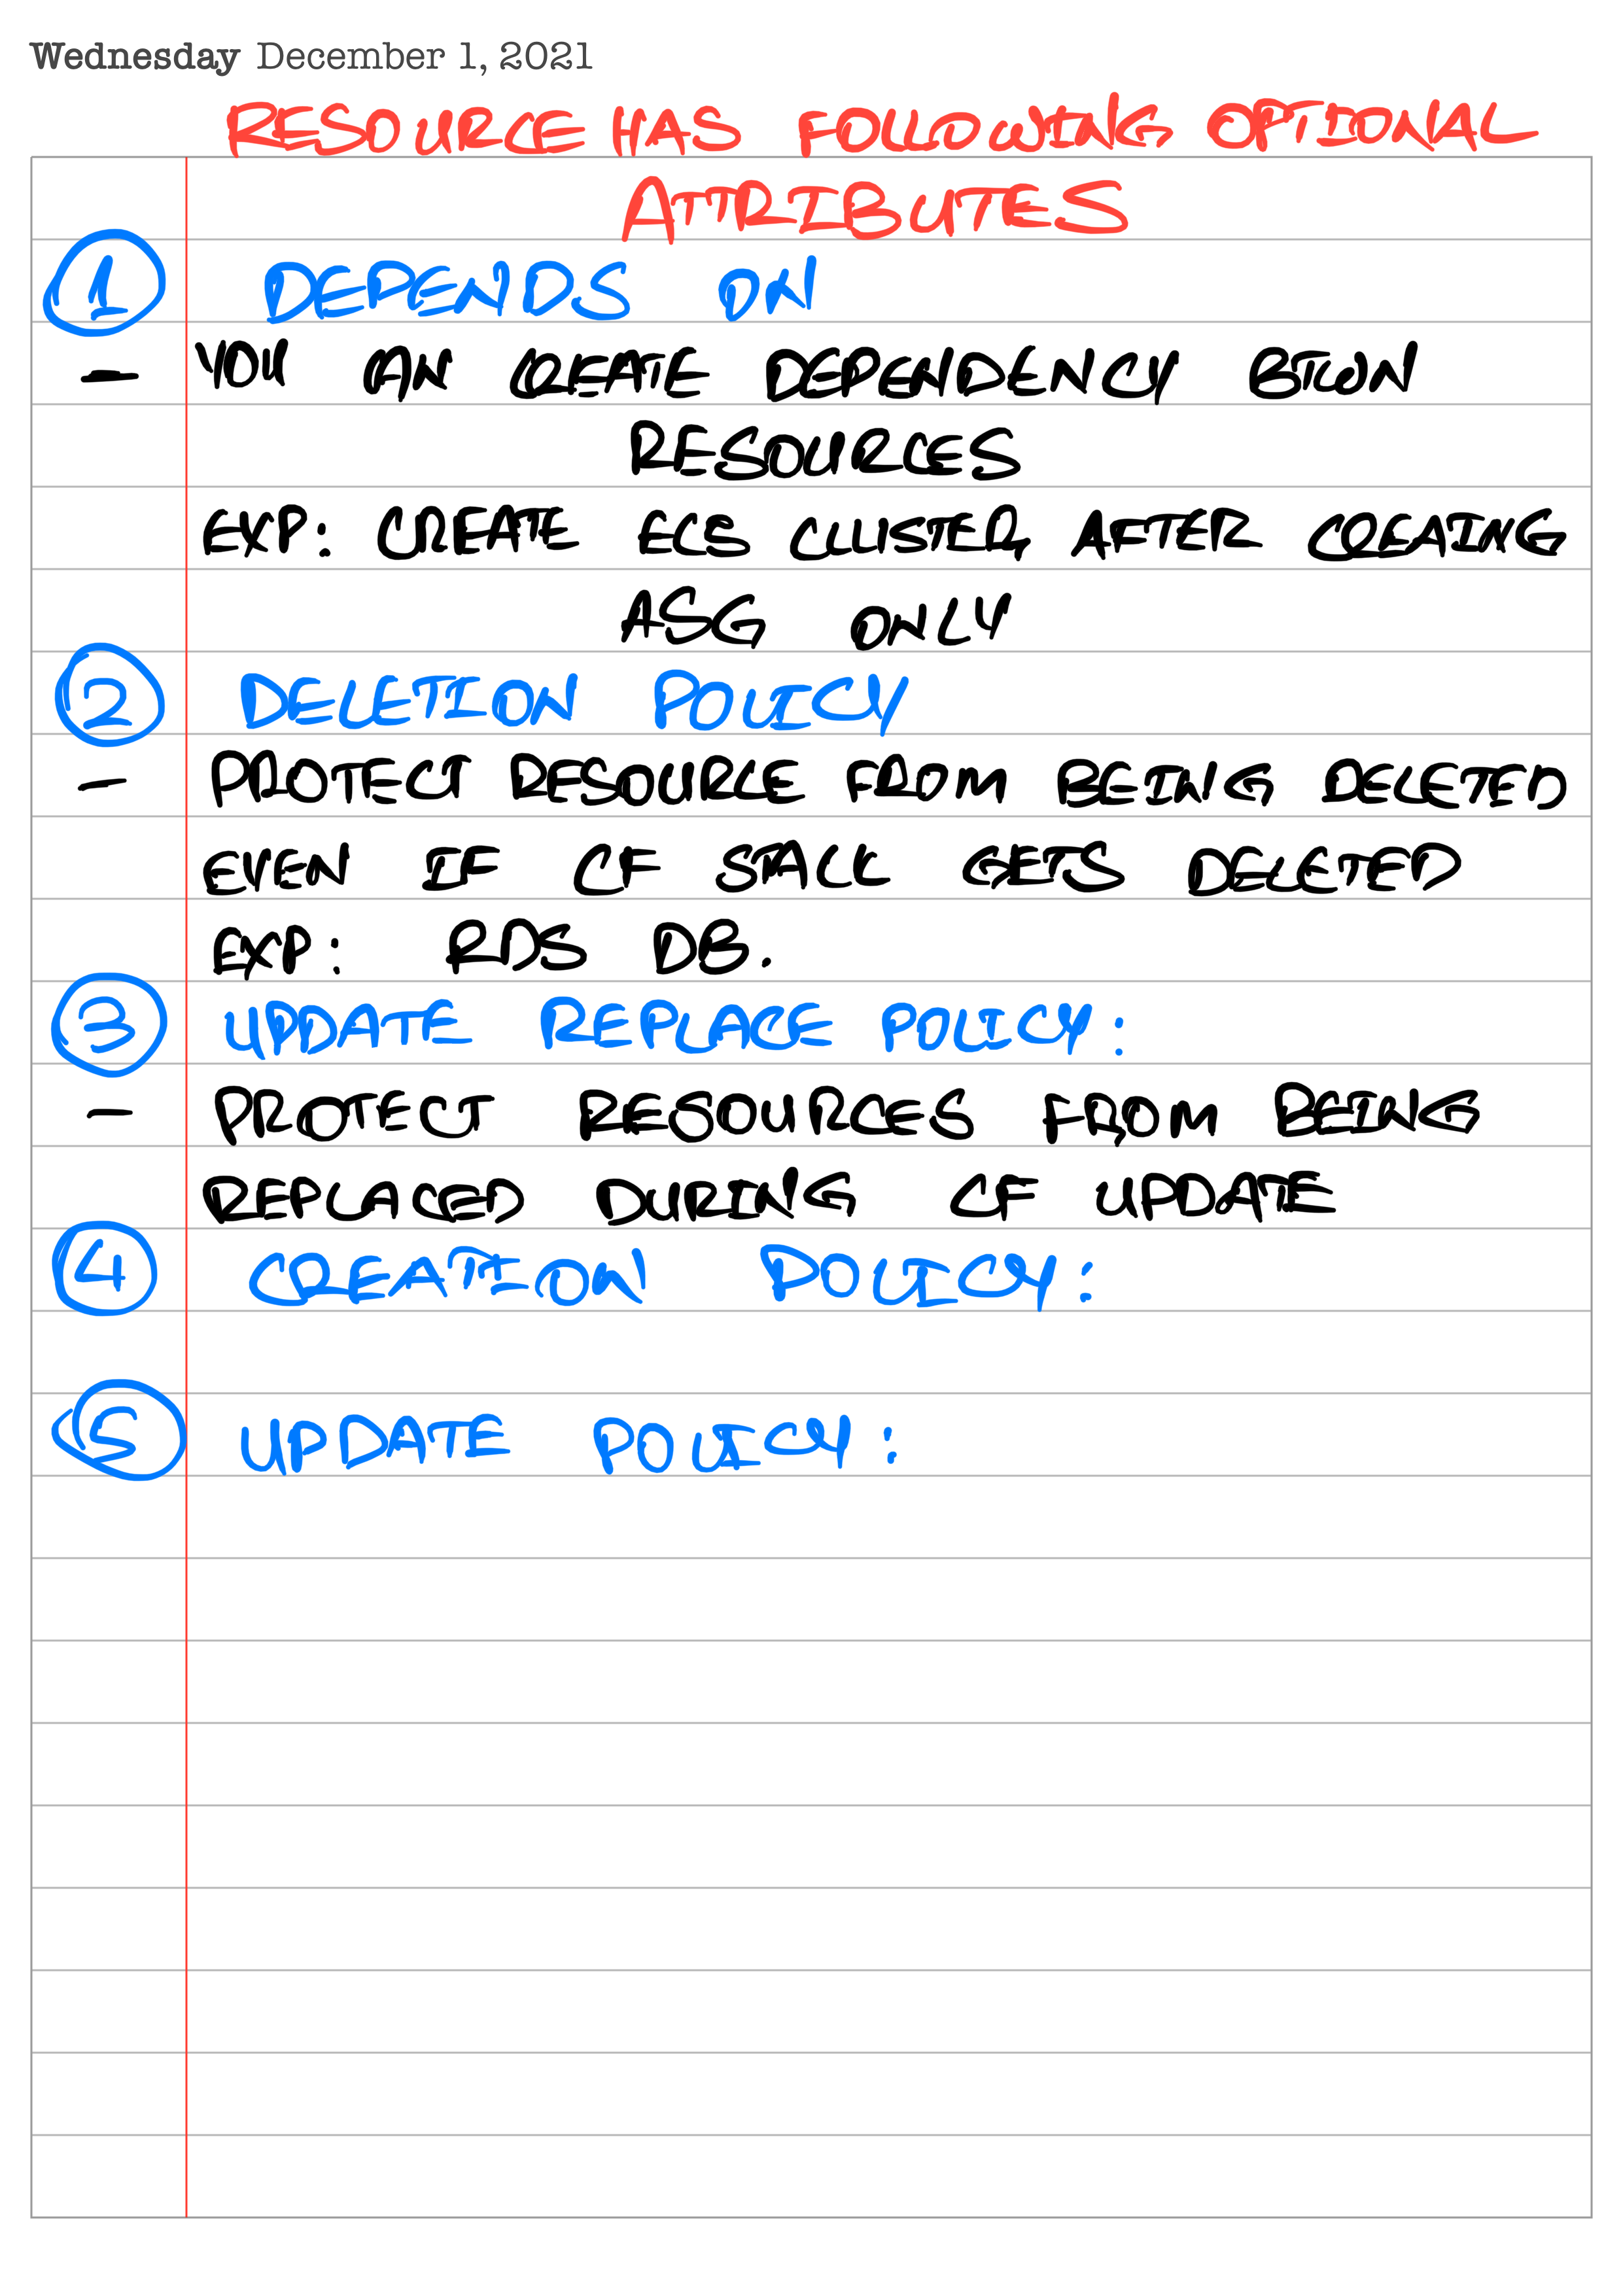 Wednesday December 1, 2021
RESOURCE HAS FOLLOWING OPTIONAL
ATTRIBUTES
1 DEPENDS ON
- YOU CAN CREATE DEPENDENCY BTWN
RESOURCES
EXP: CREATE ECS CLUSTER AFTER CREAING
ASG ONLY
2 DELETION POLICY
- PROTECT RESOURCE FROM BEING DELETED
EVEN IF CF STACK GETS DELETED
EXP: RDS DB.
3 UPDATE REPLACE POLICY:
- PROTECT RESOURCES FROM BEING
REPLACED DURING CF UPDATE
4 CREATION POLICY:
5 UPDATE POLICY: